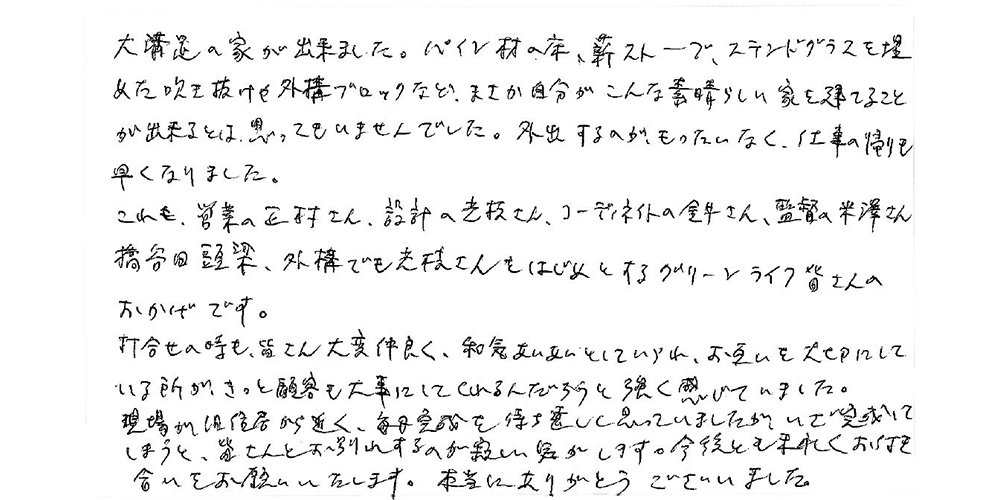 大満足の家が出来ました。パイン材の床、薪ストーブ、ステンドグラスを埋
めた吹き抜けや外構ブロックなど、まさか自分がこんな素晴らしい家を建てること
が出来るとは、思ってもいませんでした。外出するのが、もったいなく、仕事の帰りも
早くなりました。
これも、営業の正村さん、設計の老枝さん、コーディネイトの金井さん、監督の米澤さん
橋谷田頭梁、外構でも老枝さんをはじめとするグリーンライフ皆さんの
おかげです。
打合せの時も、皆さん大変仲良く、和気あいあいとしていられ、お互いを大切にして
いる所が、きっと顧客も大事にしてくれるんだろうと強く感じていました。
現場が旧住居から近く、毎日完成を待ち遠しく思っていましたが、いざ完成して
しまうと、皆さんとお別れするのが寂しい気がします。今後とも末永くお付き
合いをお願いいたします。本当にありがとうございました。